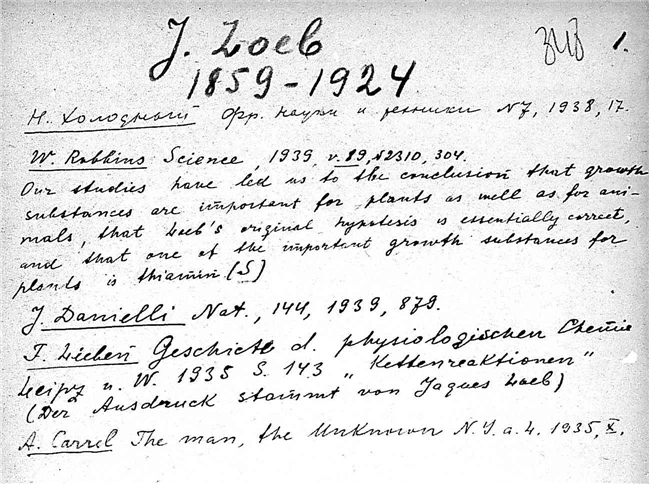 J. Loeb
1.
1859-1924
Н. Холодный Фр. науки и техники N7, 1938, 17.
W. Robbins Science, 1939, v. 89, N2310, 304.
Our studies have led us to the conclusion that growth
substances are important for plants as well as for ani-
mals, that Loeb's original hypotesis is essentially correct,
and that one of the important growth substances for
plants is thiamin (S)
J. Danielli Nat., 144, 1939, 879.
F. Lieben Geschichte d. physiologischen Chemie
Leipz u. W. 1935 S. 143 „Kettenreaktionen"
(Der Ausdruck stammt von Jaques Loeb)
A. Carrel The man, the Unknown N.Y. a. L. 1935, X.